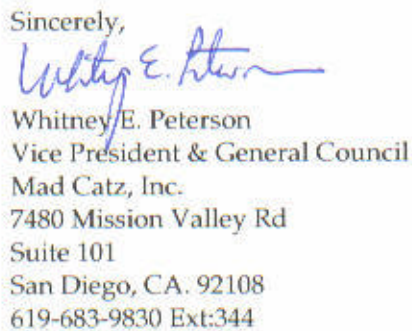 Sincerely,
Whitney E. Peterson
Whitney E. Peterson
Vice President & General Council
Mad Catz, Inc.
7480 Mission Valley Rd
Suite 101
San Diego, CA. 92108
619-683-9830 Ext:344